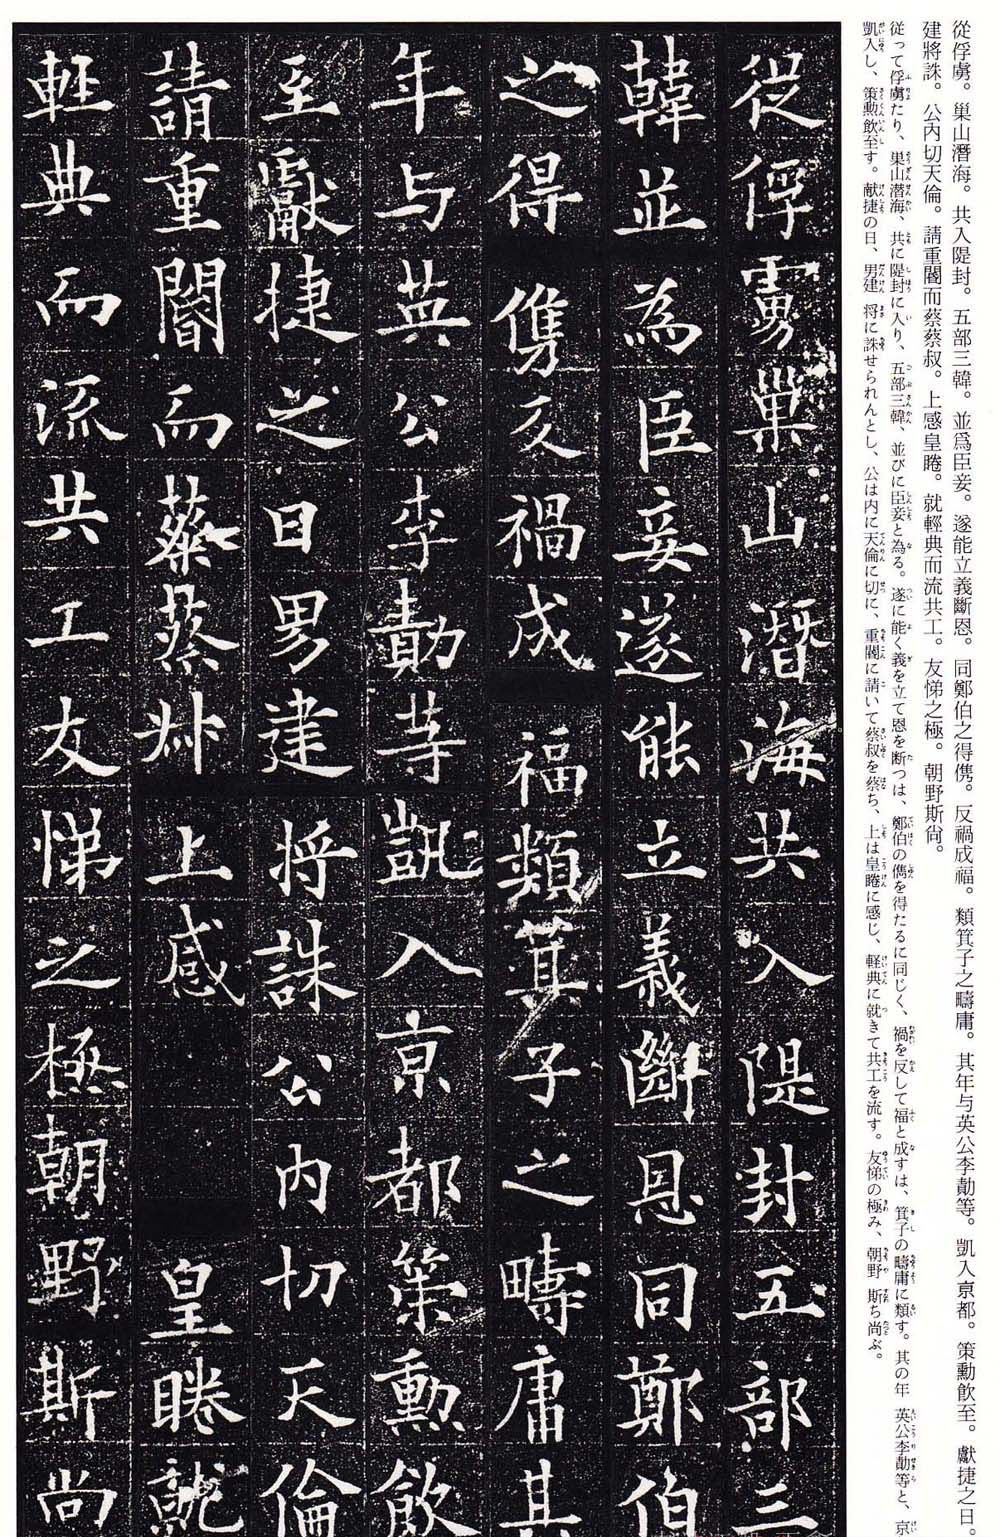 從俘虜。巢山潛海。共入隄封。五部三韓。並爲臣妾。遂能立義斷恩。同鄭伯之得儁。反禍成福。類箕子之疇庸。其年与英公李勣等。凱入京都。策勳飮至。獻捷之日。
建將誅。公內切天倫。請重閽而蔡蔡叔。上感皇睠。就輕典而流共工。友悌之極。朝野斯尙。
従って俘虜たり、巣山潜海、共に隄封に入り、五部三韓、並びに臣妾と為る。遂に能く義を立て恩を断つは、鄭伯の儁を得たるに同じく、禍を反して福と成すは、箕子の疇庸に類す。其の年 英公李勣等と、京
凱入し、策勲飲至す。献捷の日、男建 将に誅せられんとし、公は内に天倫に切に、重閽に請いて蔡叔を蔡ち、上は皇睠に感じ、軽典に就きて共工を流す。友悌の極み、朝野 斯ち尚ぶ。
從俘虜巢山潛海共入隄封五部三
韓並為臣妾遂能立義斷恩同鄭伯
之得儁反禍成福類箕子之疇庸其
年与英公李勣等凱入京都策勳飲
至獻捷之日男建將誅公內切天倫
請重閽而蔡蔡叔上感皇睠就
輕典而流共工友悌之極朝野斯尚